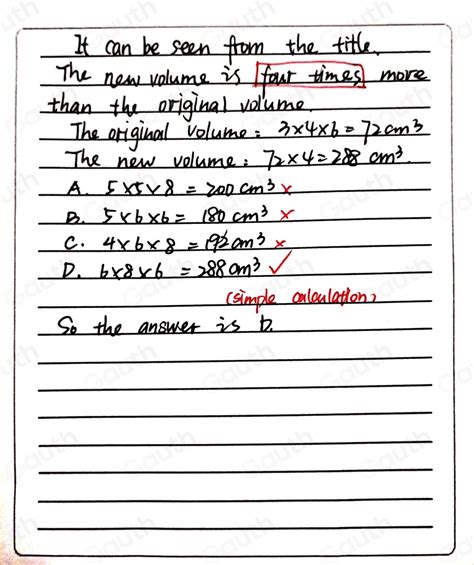 It can be seen from the title.
The new volume is four times more
than the original volume.
The original volume: 3×4×6=72cm³
The new volume: 72×4=288 cm³.
A. 5×5×8=200cm³ ×
B. 5×6×6= 180 cm³ ×
C. 4×6×8 =192cm³ ×
D. 6×8×6 =288cm³ ✓
(simple calculation)
So the answer is D.